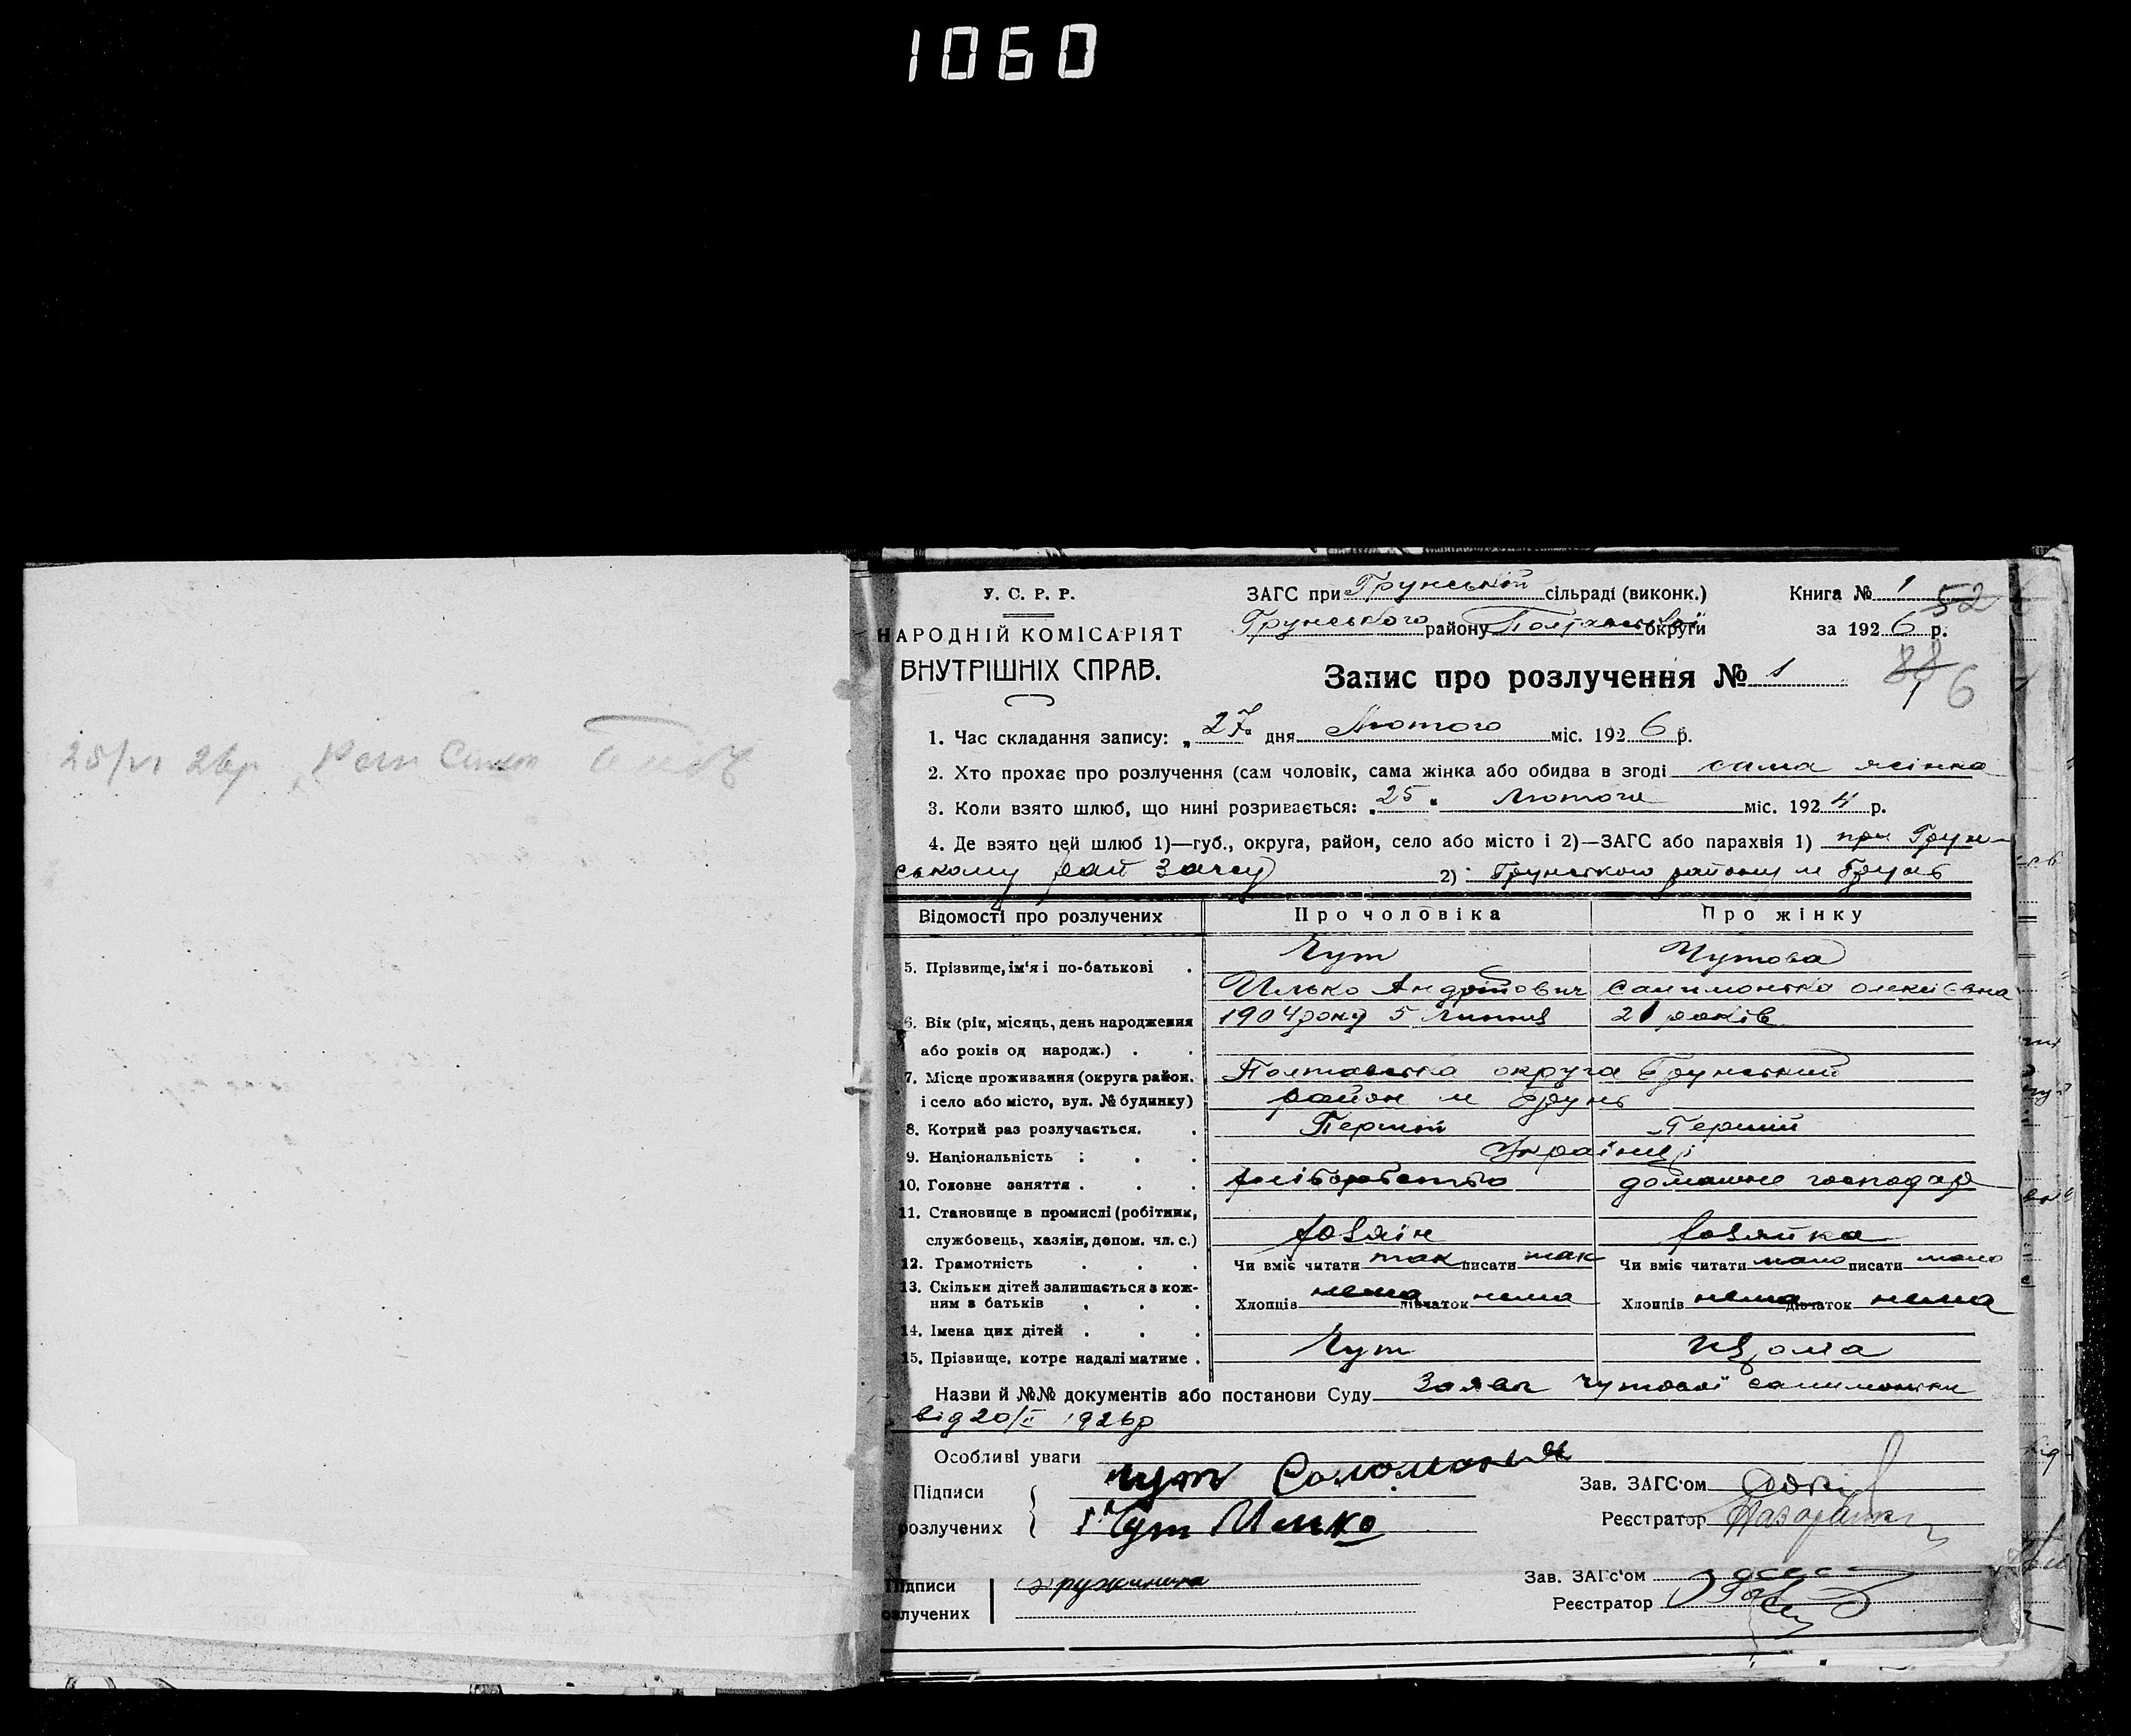 1060
У. С. Р. Р.
НАРОДНІЙ КОМІСАРІЯТ
ВНУТРІШНІХ СПРАВ.
ЗАГС при Грунській сільраді (виконк.)
Грунського району Полтавської округи
Книга № 1
52
за 1926 р.
6
Запис про розлучення № 1
1. Час складання запису: „27" дня Лютого міс. 1926 р.
2. Хто прохає про розлучення (сам чоловік, сама жінка або обидва в згоді сама жінка
3. Коли взято шлюб, що нині розривається: „25" Лютого міс. 1924 р.
4. Де взято цей шлюб 1)—губ., округа, район, село або місто і 2)—ЗАГС або парахвія 1) при Грун-
ському рай Загсу 2) Грунського району м Грунь
Відомості про розлучених Про чоловіка Про жінку
5. Прізвище, ім'я і по-батькові . Чут Чутова
Илько Андрійович Салимонтка Олексієвна
6. Вік (рік, місяць, день народження 1904 року 5 Липня 21 років
або років од народж.) . .
7. Місце проживання (округа район. Полтавська округа Грунський
і село або місто, вул. № будинку) район м Грунь
8. Котрий раз розлучається. . Перший Перший
9. Національність : . . Українці
10. Головне заняття . . . хліборобство домашнє господар
11. Становище в промислі (робітник,
службовець, хазяін, допом. чл. с.) хозяїн хозяйка
12. Грамотність . . . Чи вміє читати так писати так Чи вміє читати мало писати мало
13. Скільки дітей залишається з кож-
ним з батьків . . . Хлопців нема дівчаток нема Хлопців нема дівчаток нема
14. Імена цих дітей . . .
15. Прізвище, котре надалі матиме . Чут
Назви й №№ документів або постанови Суду Заява Чутової Салимонтки
від 20/II 1926р
Особливі уваги
Підписи
розлучених
Чут Соломонья
Чут Илько
Зав. ЗАГС'ом
Реєстратор
Підписи
розлучених
Зав. ЗАГС'ом
Реєстратор